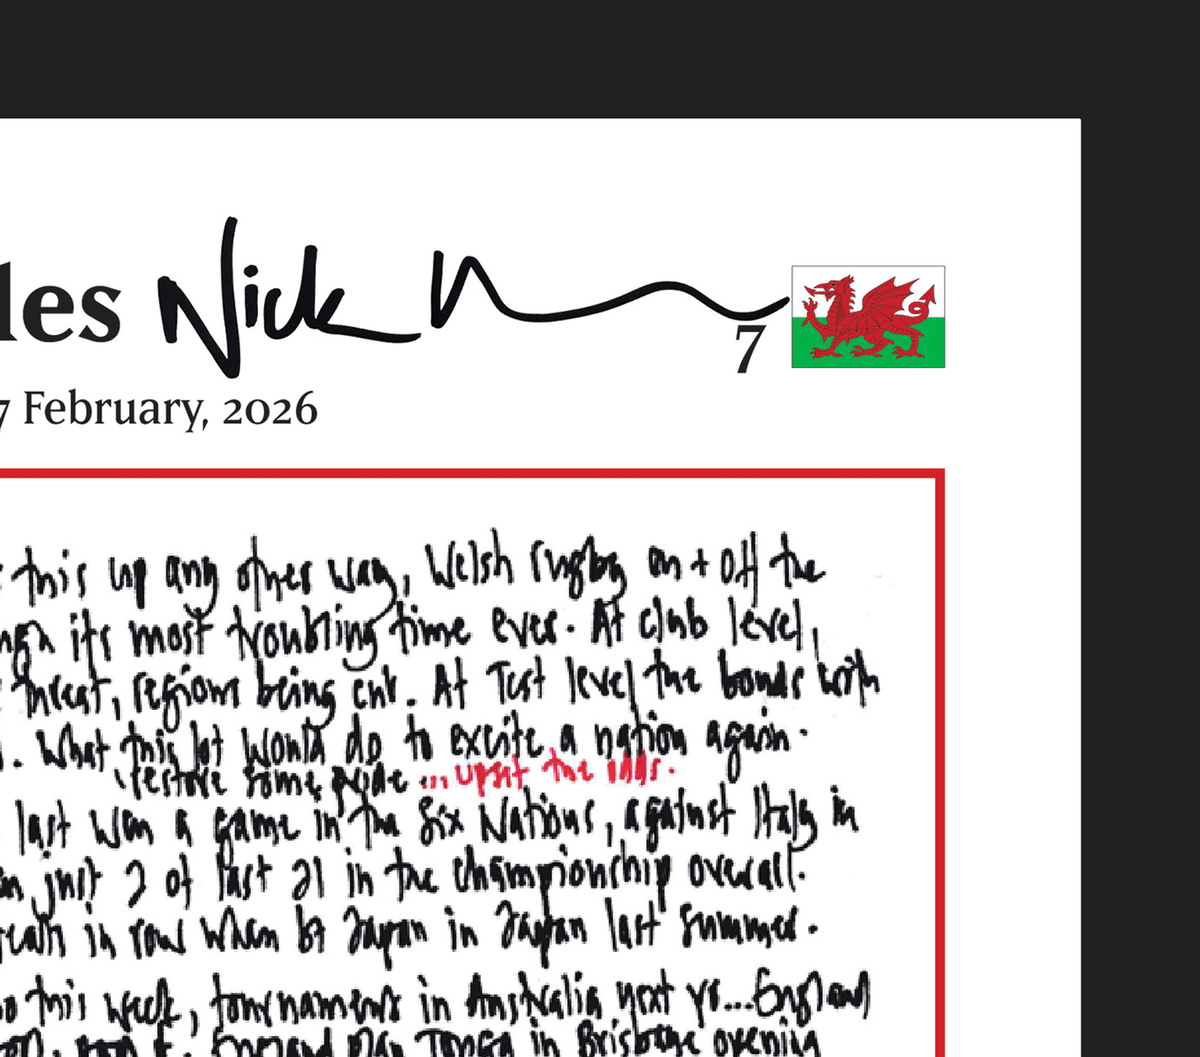 les Nick
7
7 February, 2026
this up any other way, Welsh rugby on + off the
its most troubling time ever. At club level,
threat, regions being cut. At Test level the bonds with
. What this lot would do to excite a nation again.
restore some pride ... upset the odds.
last won a game in the Six Nations, against Italy in
just 2 of last 21 in the championship overall.
in row when bt Japan in Japan last summer.
this week, tournaments in Australia next yr...England
England play Tonga in Brisbane opening